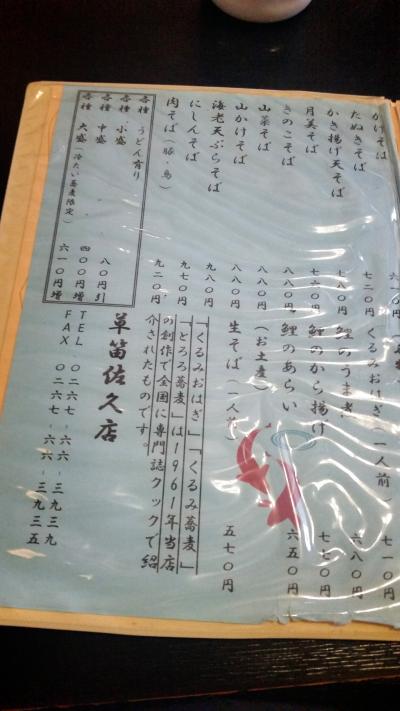 かけそば
たぬきそば 七二〇円
かき揚げ天そば
月美そば 七六〇円
きのこそば 八八〇円
山菜そば 八八〇円
山かけそば 八八〇円
海老天ぷらそば 九八〇円
にしんそば 九七〇円
肉そば(豚、鳥) 九二〇円
各種 うどん有り
各種 小盛 八〇円引
各種 中盛 四〇〇円増
各種 大盛(冷たい蕎麦限定) 六一〇円増
くるみおはぎ(一人前) 七一〇円
鯉のうま煮 六八〇円
鯉のから揚げ 七七〇円
鯉のあらい 六五〇円
(お土産)
生そば(一人前) 五七〇円
「くるみおはぎ」「くるみ蕎麦」
「とろろ蕎麦」は1961年当店
の創作で全国に専門誌クックで紹
介されたものです。
草笛佐久店
TEL 〇二六七-六六-三九三九
FAX 〇二六七-六六-三九三五